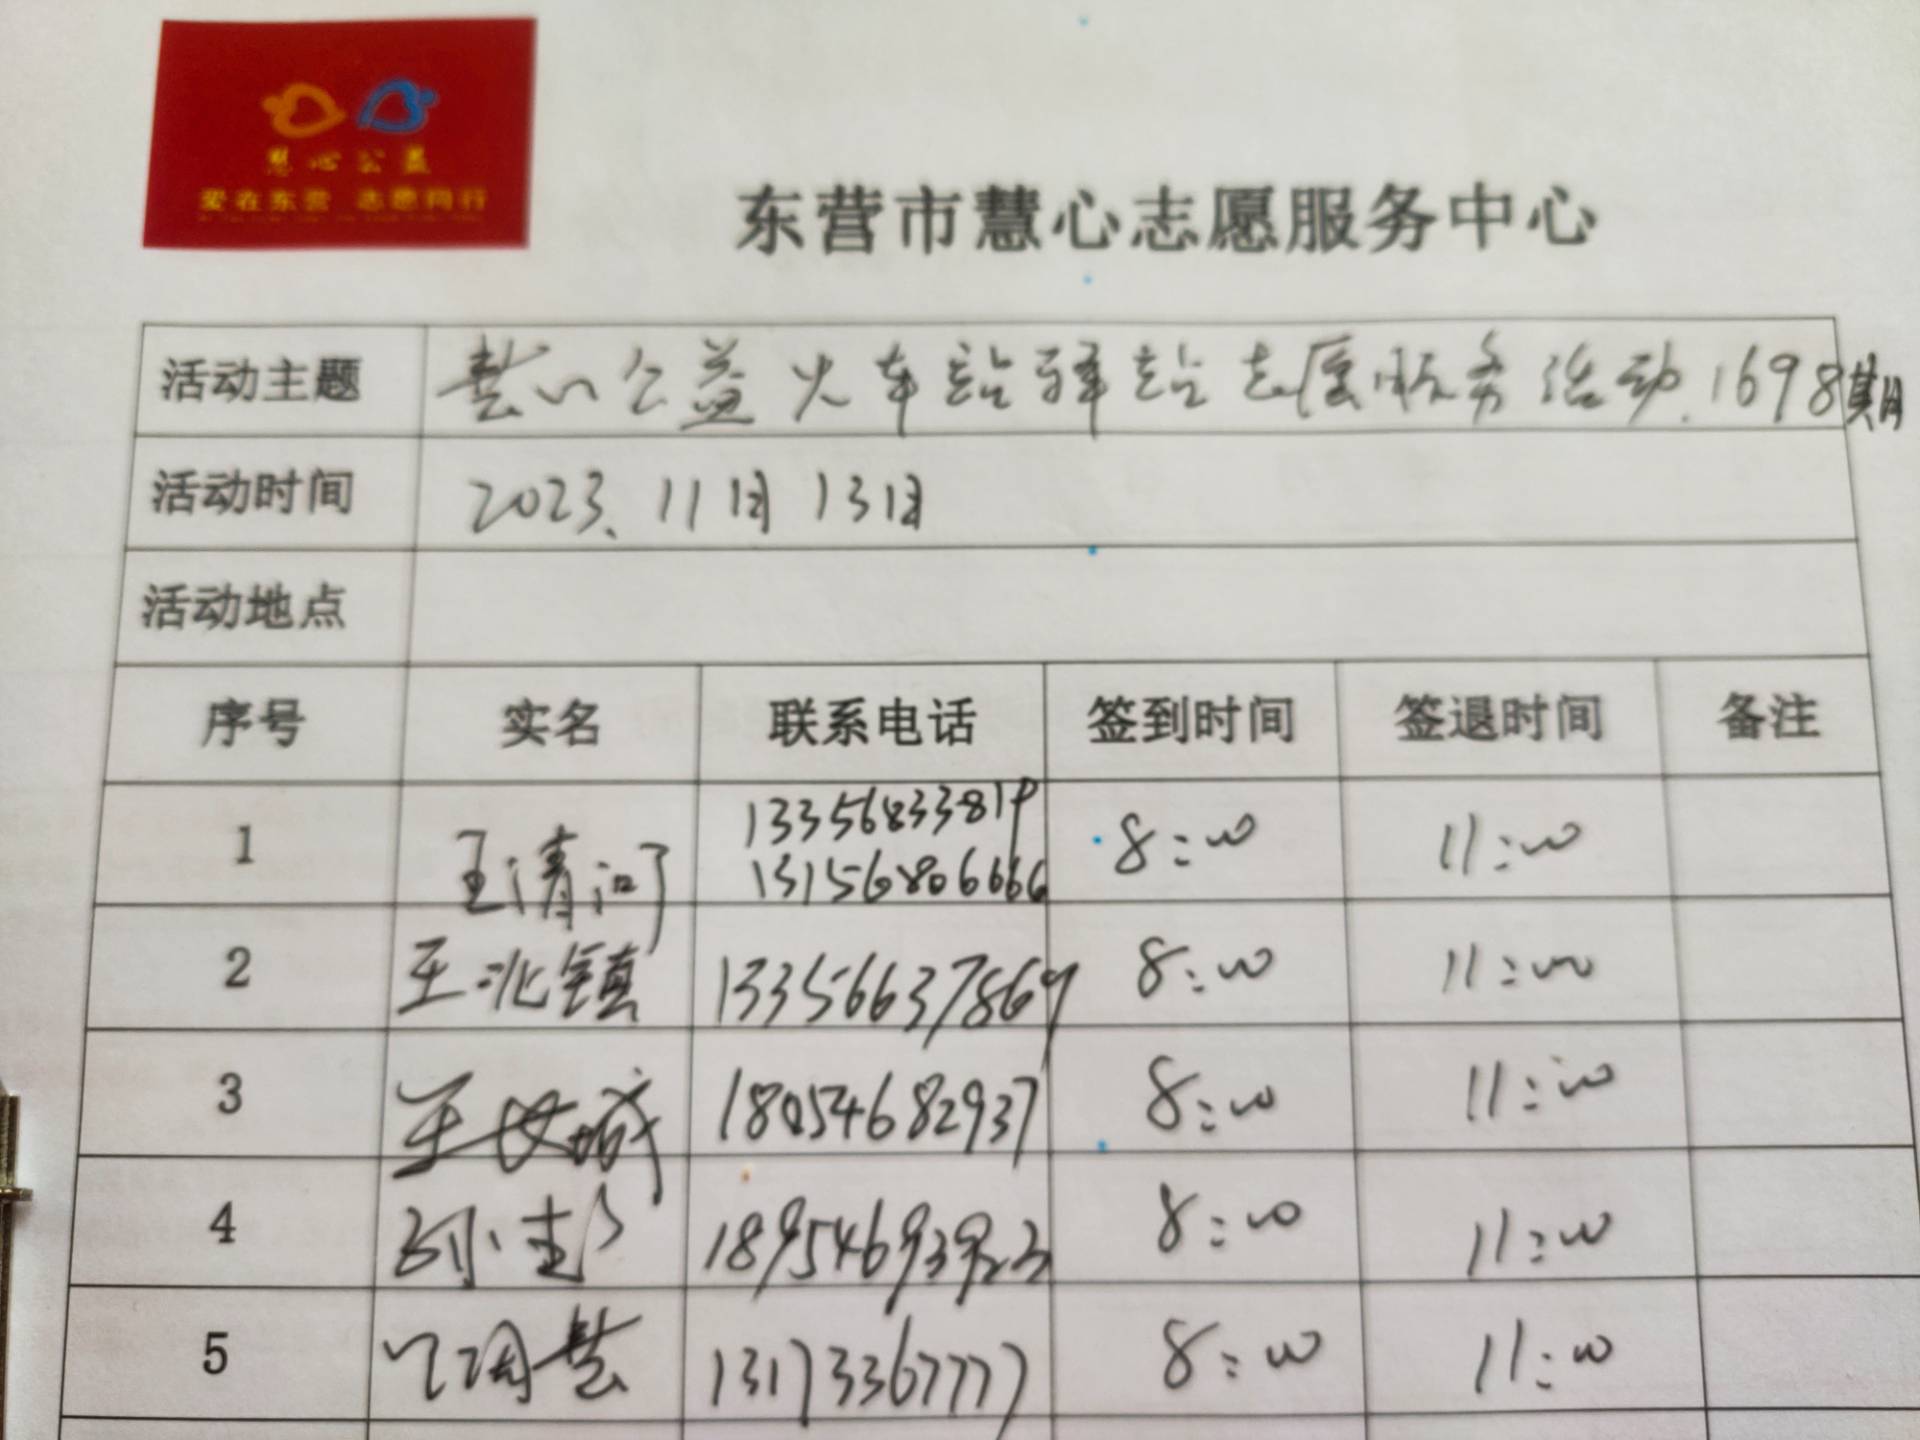 慧心公益
爱在东营 志愿同行
东营市慧心志愿服务中心
活动主题 慧心公益火车站驿站志愿服务活动.1698期
活动时间 2023、11月13日
活动地点
序号 实名 联系电话 签到时间 签退时间 备注
1 王清河 13356833819 8:00 11:00
13156806666
2 王兆镇 13356637869 8:00 11:00
3 王 城 18054682937 8:00 11:00
4 孙 18954693923 8:00 11:00
5 13173367777 8:00 11:00